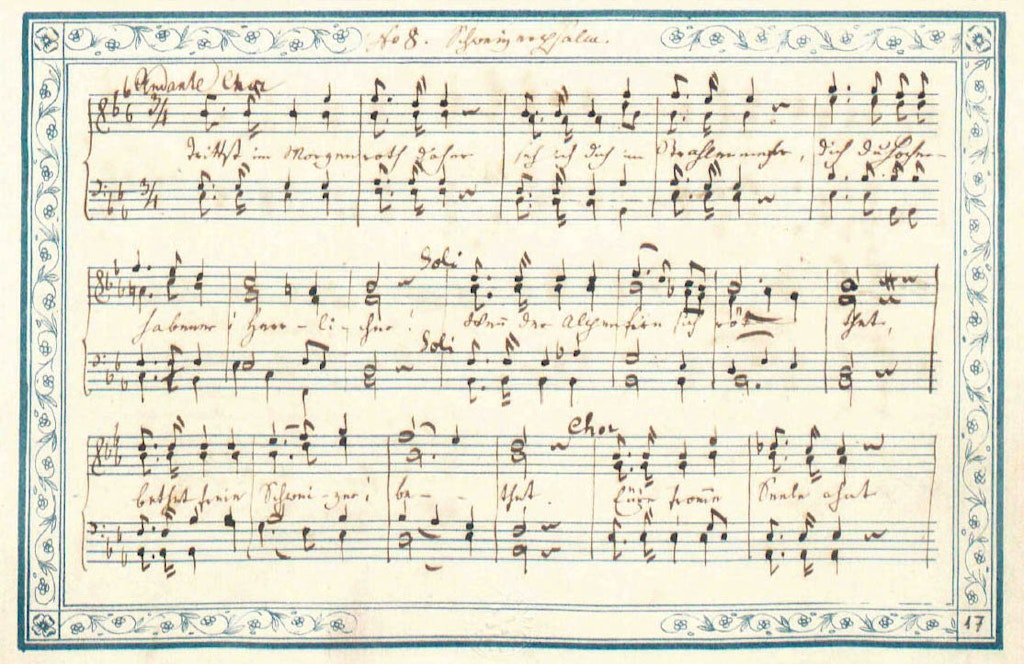 No 8. Schweizerpsalm.
Andante Chor
3/4
Trittst im Morgenroth daher seh ich dich im Strahlenmehr, dich du Hocher-
3/4
Soli
habener! Herr-li-cher! Wenn der Alpenfirn sich röt- thet,
Soli
Chor
bethet freie Schwei-zer! be- - thet. Eüre fromme Seele ahnt
17